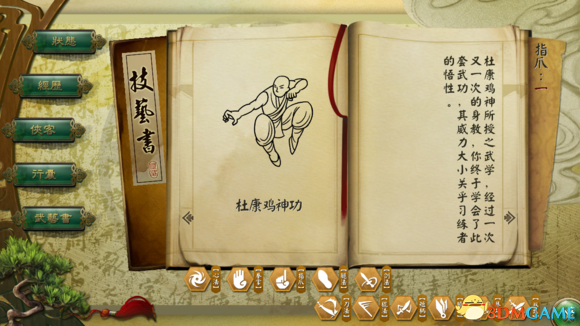 狀態
經歷
俠客
行囊
武藝書
技藝書
杜康鸡神功
杜康鸡神所授之武学，经过一次
又一次的身教，你终于学会了此
套武功，其威力大小关乎习练者
的悟性。
指爪：一
3DMGAME